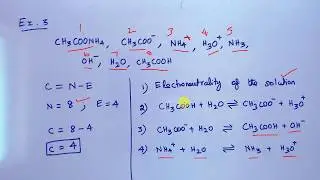 Ex. 3
1 2 3 4 5
CH₃COONH₄, CH₃COO⁻, NH₄⁺, H₃O⁺, NH₃,
6 7 8
OH⁻, H₂O, CH₃COOH
C = N-E
N = 8, E=4
C = 8-4
C = 4
1) Electroneutrality of the solution
2) CH₃COOH + H₂O ⇌ CH₃COO⁻ + H₃O⁺
3) CH₃COO⁻ + H₂O ⇌ CH₃COOH + OH⁻
4) NH₄⁺ + H₂O ⇌ NH₃ + H₃O⁺